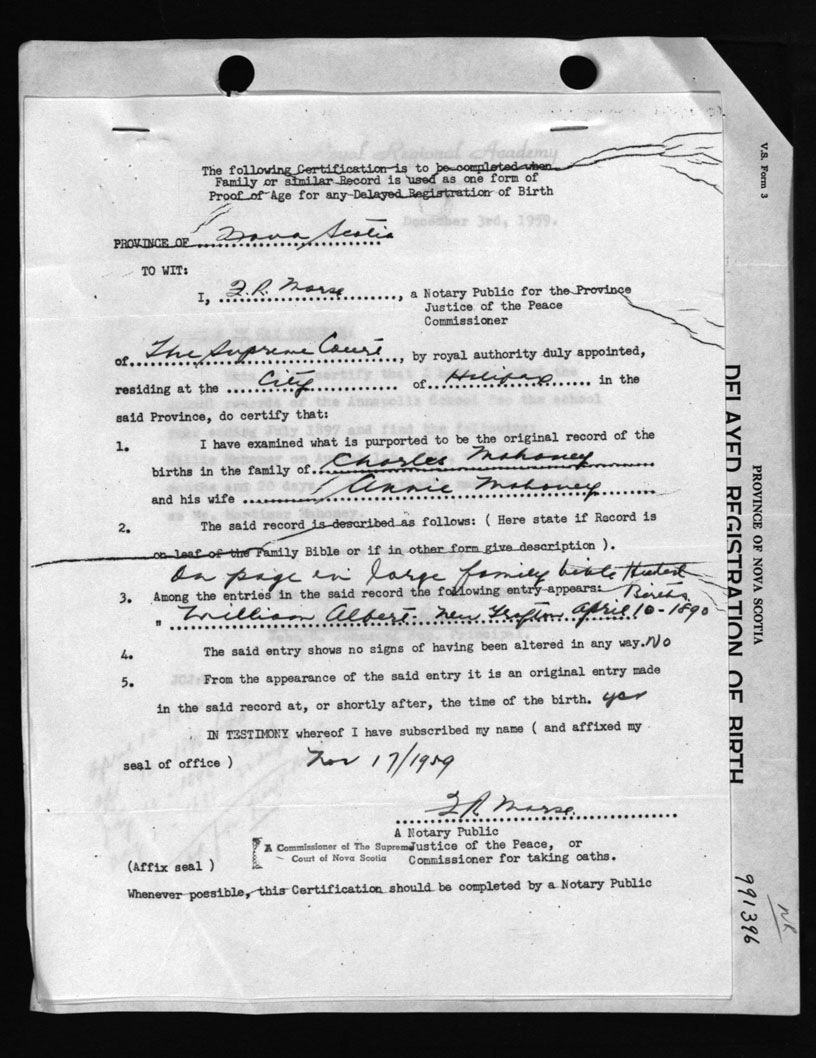 The following Certification is to be completed when
Family or similar Record is used as one form of
Proof of Age for any Delayed Registration of Birth
December 3rd, 1959.
PROVINCE OF Nova Scotia
TO WIT:
I, F.R. Morse, a Notary Public for the Province
Justice of the Peace
Commissioner
of The Supreme Court, by royal authority duly appointed,
residing at the City of Halifax in the
said Province, do certify that:
1. I have examined what is purported to be the original record of the
births in the family of Charles Mahoney
and his wife Annie Mahoney
2. The said record is described as follows: ( Here state if Record is
on leaf of the Family Bible or if in other form give description ).
On page in large family bible
3. Among the entries in the said record the following entry appears: Births
" William Albert April 10-1890
4. The said entry shows no signs of having been altered in any way. No
5. From the appearance of the said entry it is an original entry made
in the said record at, or shortly after, the time of the birth. yes
IN TESTIMONY whereof I have subscribed my name ( and affixed my
seal of office ) Nov 17/1959
F R Morse
A Notary Public
Justice of the Peace, or
Commissioner for taking oaths.
A Commissioner of The Supreme
Court of Nova Scotia
(Affix seal )
Whenever possible, this Certification should be completed by a Notary Public
V.S. Form 3
PROVINCE OF NOVA SCOTIA
DELAYED REGISTRATION OF BIRTH
991396
NR